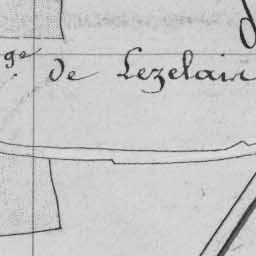 ge de Lezelair